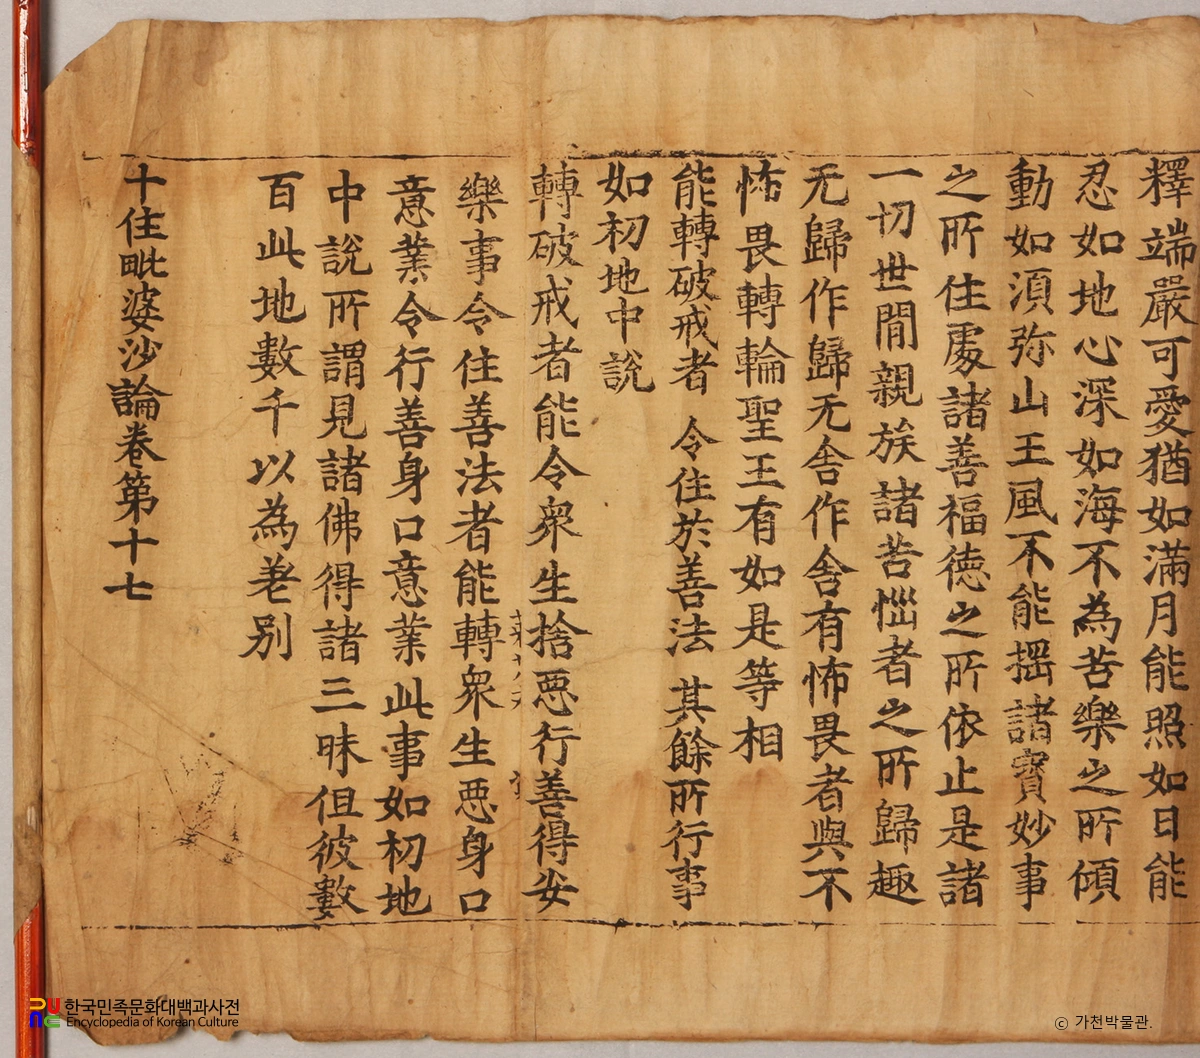 釋端嚴可愛猶如滿月能照如日能
忍如地心深如海不為苦樂之所傾
動如須弥山王風不能搖諸寶妙事
之所住處諸善福徳之所依止是諸
一切世間親族諸苦惱者之所歸趣
无歸作歸无舍作舍有怖畏者與不
怖畏轉輪聖王有如是等相
能轉破戒者 令住於善法 其餘所行事
如初地中說
轉破戒者能令衆生捨惡行善得安
樂事令住善法者能轉衆生惡身口
意業令行善身口意業此事如初地
中說所謂見諸佛得諸三昧但彼數
百此地數千以為差別
十住毗婆沙論卷第十七
한국민족문화대백과사전
Encyclopedia of Korean Culture
ⓒ 가천박물관.